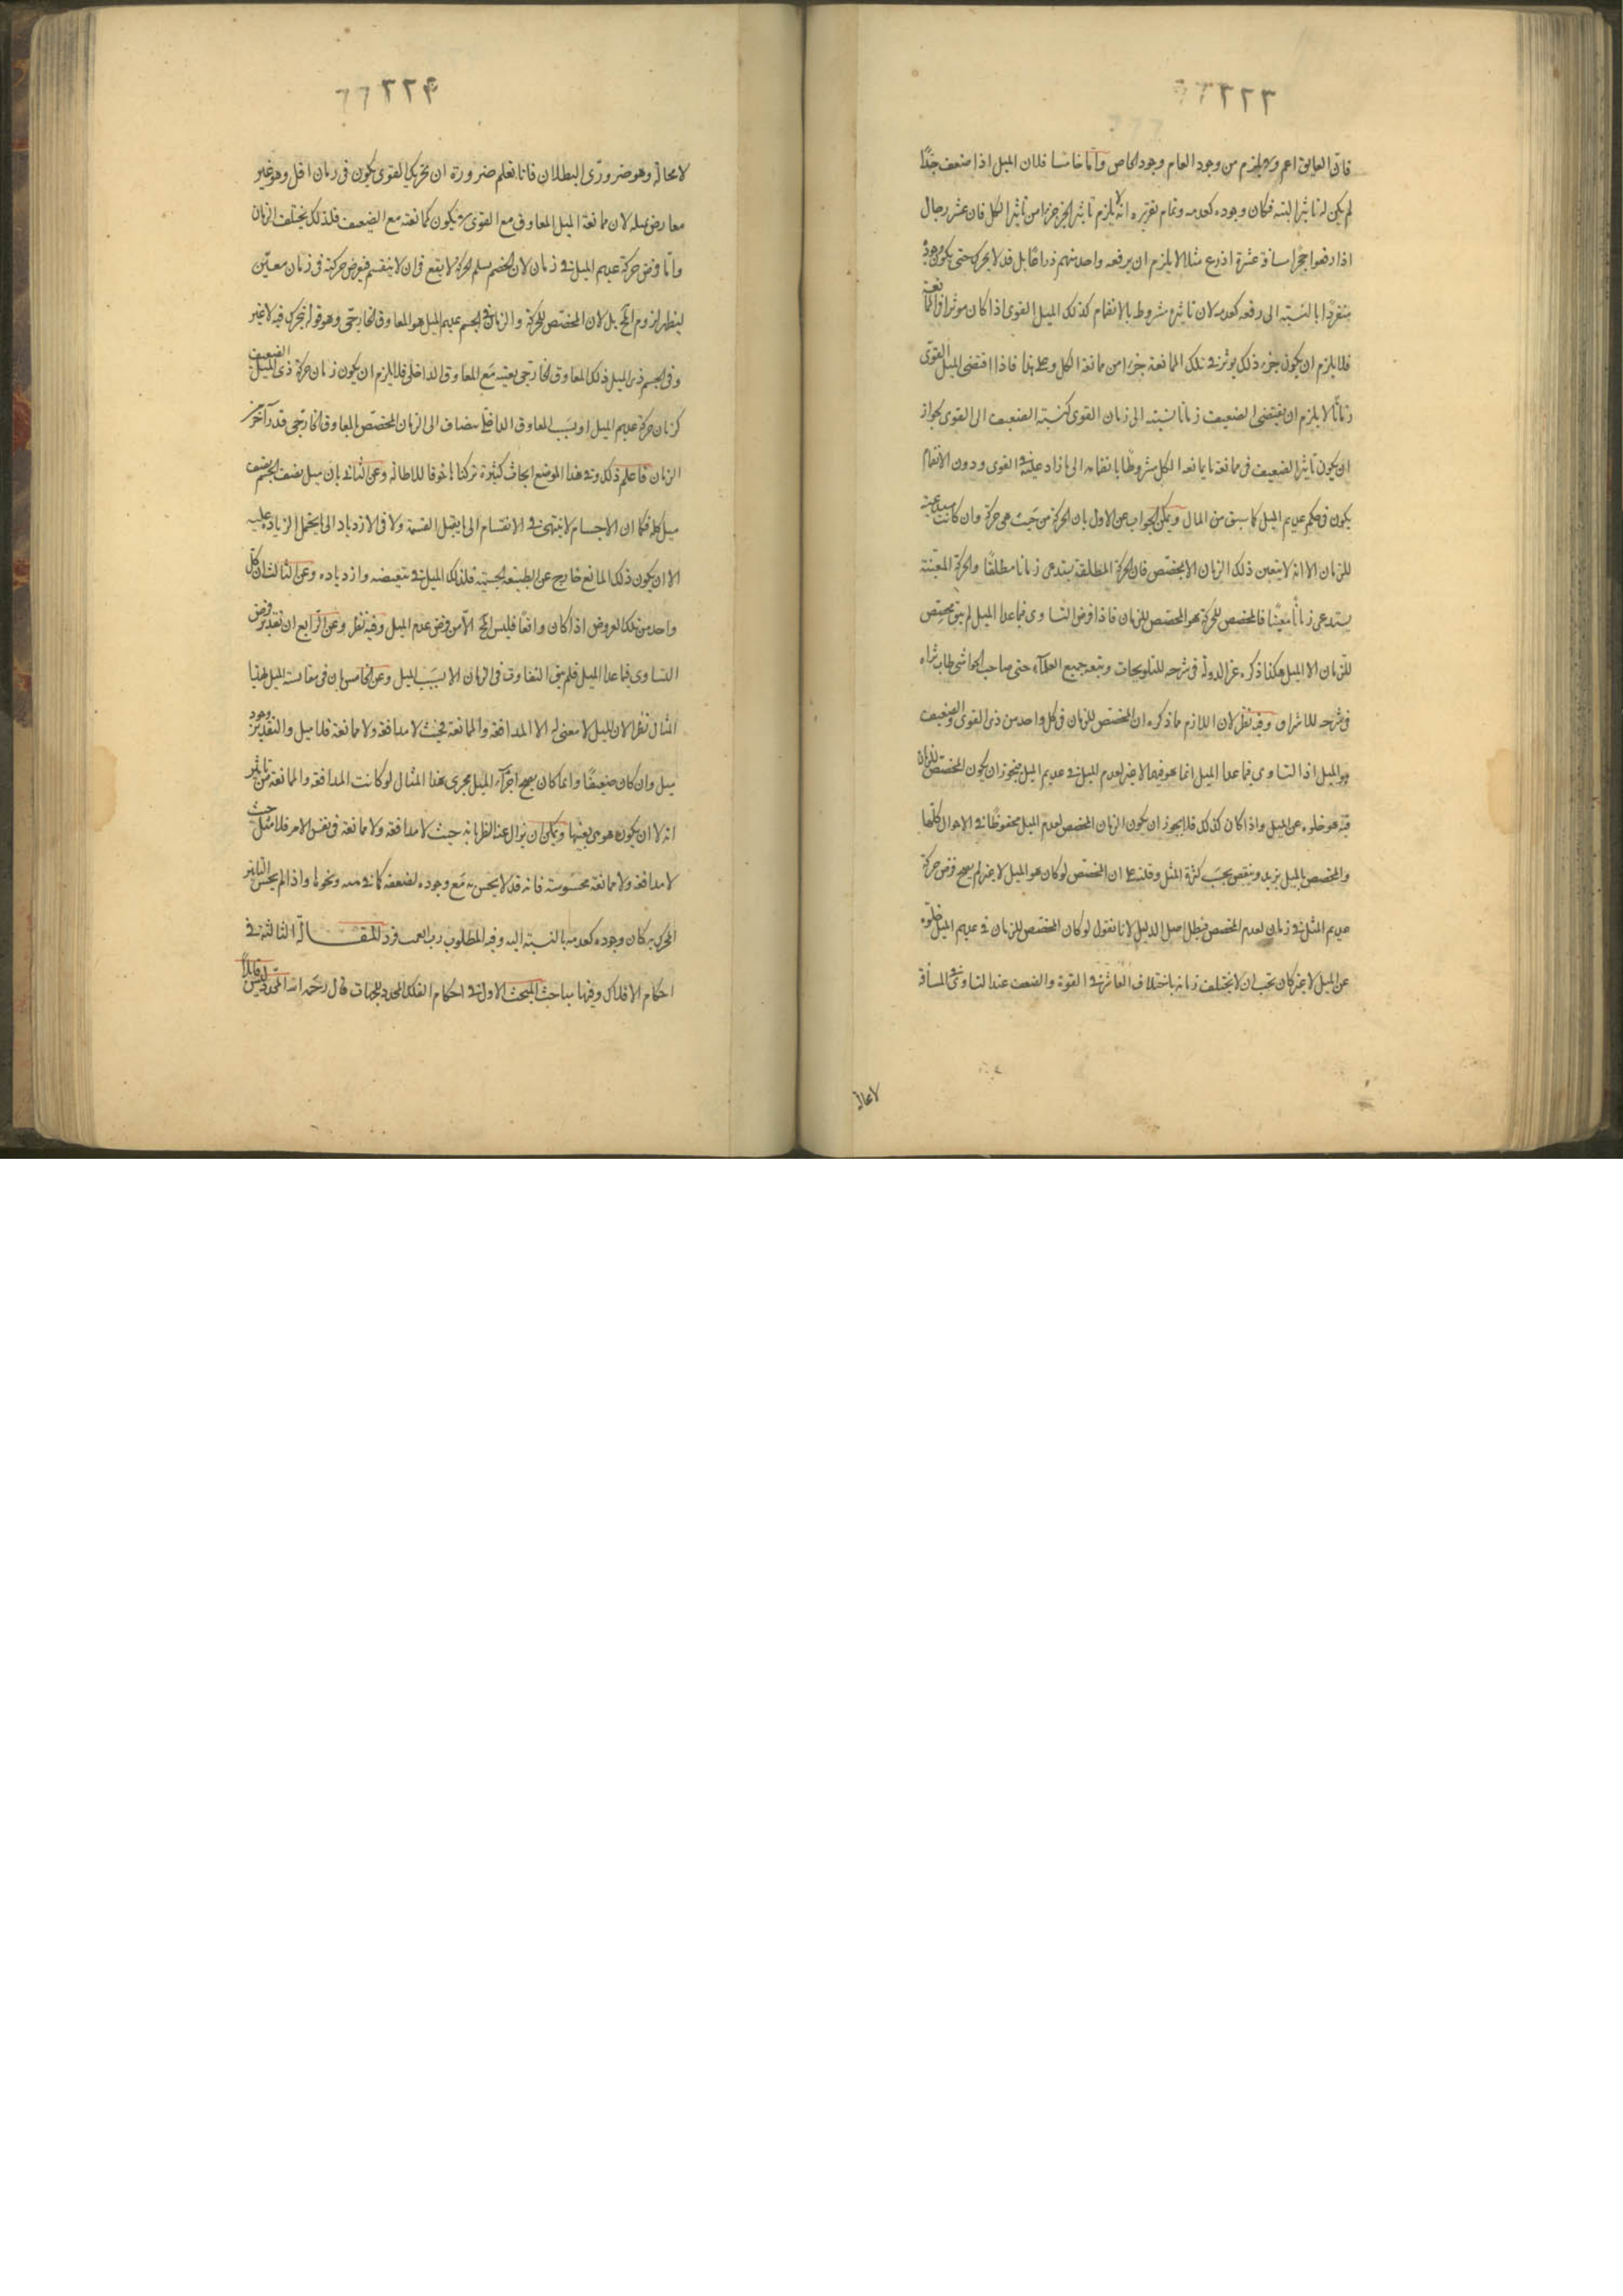 ٢٢٣
فان العايق اعم ولا يلزم من وجود العام وجود الخاص واما خامسا فلان الميل اذا ضعف جدًا
لم يكن له تاثير البتة فكان وجوده كعدمه وتمام تقريره انه لا يلزم تاثير الجزء جزءا من تاثير الكل فان عشر رجال
اذا رفعوا حجرًا مسافة عشرة اذرع مثلا لا يلزم ان يرفعه واحد منهم ذراعا بل قد لا يحركه حتى يكون وجوده
منفردًا بالنسبة الى رفعه كعدمه لان تاثيره مشروط بالانضمام كذلك الميل القوى اذا كان موثرا فى الممانعة
فلا يلزم ان يكون جزء ذلك يوثر فى تلك الممانعة جزءا من ممانعة الكل وعلى هذا فاذا اقتضى الميل القوى
زمانًا لا يلزم ان يقتضى الضعيف زمانا نسبته الى زمان القوى كنسبة الضعيف الى القوى لجواز
ان يكون تاثير الضعيف فى ممانعة ما يمانعه الكل مشروطًا بانضمامه الى ما زاد عليه فى القوى ودون الانضمام
يكون فى حكم عديم الميل كما سبق من المثال ويمكن الجواب عن الاول بان الحركة من حيث هى حركة وان كانت مستدعية
للزمان الا انه لا يتعين ذلك الزمان الا بمخصص فان الحركة المطلقة يستدعى زمانا مطلقًا والحركة المعينة
يستدعى زمانًا معينًا فالمخصص للحركة هو المخصص للزمان فاذا فرض التساوى فيما عدا الميل لم يبق مخصص
للزمان الا الميل هكذا ذكره عز الدولة فى شرحه للتلويحات وتبعه جميع العلماء حتى صاحب الحواشى طاب ثراه
فى شرحه للاشراق وفيه نظر لان اللازم مما ذكره ان المخصص للزمان فى كل واحد من ذى القوى والضعيف
هو الميل اذ التساوى فيما عدا الميل انما هو فيهما لا غير لعدم الميل فى عديم الميل فيجوز ان يكون المخصص للزمان
فيه هو خلوه عن الميل واذا كان كذلك فلا يجوز ان يكون الزمان المخصص لعدم الميل محفوظًا فى الاحوال كلها
والمخصص بالميل يزيد وينقص بحسب كثرة الميل وقلته على ان المخصص لو كان هو الميل لا غير لم يصح فرض حركة
عديم الميل فى زمان لعدم المخصص فبطل اصل الدليل لانا نقول لو كان المخصص للزمان فى عديم الميل خلوه
عن الميل لا غير لكان يجب ان لا يختلف زمانه باختلاف القاسر فى القوة والضعف عند التساوى فى المسافة
لا محالة
٢٢٤
لا محالة وهو ضرورى البطلان فانا نعلم ضرورة ان تحريك القوى يكون فى زمان اقل وهو غير
معارض بمثله لان ممانعة الميل المعاوق مع القوى لا يكون كممانعته مع الضعيف فلذلك يختلف الزمان
واما فرض حركة عديم الميل فى زمان لان الخصم يسلم ان الحركة لا يقع فى آن لا ينقسم فيفرض حركته فى زمان معين
ليظهر لزوم المحال بل لان المخصص للحركة والزمان فى الجسم عديم الميل هو المعاوق الخارجى وهو قوام ما يتحرك فيه لا غير
وفى الجسم ذى الميل ذلك المعاوق الخارجى بعينه مع المعاوق الداخلى فلا يلزم ان يكون زمان حركة ذى الميل الضعيف
كزمان حركة عديم الميل اذ بسبب المعاوق الداخلى يضاف الى الزمان المخصص بالمعاوق الخارجى قدر آخر من
الزمان فاعلم ذلك وفى هذا الموضع ابحاث كثيرة تركناها خوفا للاطالة وعن الثانى بان ميل نصف الجسم نصف
ميل كله فكما ان الاجسام لا ينتهى فى الانقسام الى ما لا يقبل القسمة ولا فى الازدياد الى ما لا يحتمل الزيادة عليه
الا ان يكون ذلك لمانع خارج عن الطبيعة الجسمية فلذلك الميل فى تنقيصه وازدياده وعن الثالث ان كل
واحد من تلك الفروض اذا كان واقعًا فليس المحال الا من فرض عدم الميل وفيه نظر وعن الرابع ان تقدير فرض
التساوى فيما عدا الميل فلم يبق التفاوت فى الزمان الا بسبب الميل وعن الخامس بان فى مقايسة الميل بهذا
المثال نظر الان الميل لا معنى له الا المدافعة والممانعة فحيث لا مدافعة ولا ممانعة فلا ميل والتقدير وجود
ميل وان كان ضعيفًا وانما كان يصح اجراء الميل مجرى هذا المثال لو كانت المدافعة والممانعة من تاثير
انه لا ان يكون هو هى بعينها ويمكن ان يزال هذا النظر بانه حيث لا مدافعة ولا ممانعة فى نفس الامر فلا ميل حيث
لا مدافعة ولا ممانعة محسوسة فانه قد لا يحس به مع وجوده لضعفه كما فى ونحوها واذا لم يحس التاثير
المحرك به كان وجوده كعدمه بالنسبة اليه وفيه المطلوب رب العـ المقالة الثالثة فى
احكام الافلاك وفيها مباحث المبحث الاول فى احكام الفلك المحدد للجهات قال رحمه الله المحدد ليس قابلاً